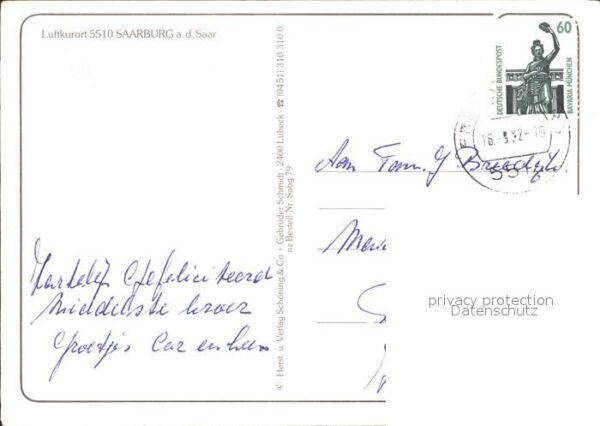 Luftkurort 5510 SAARBURG a. d. Saar
60
DEUTSCHE BUNDESPOST
BAVARIA MÜNCHEN
Aan Fam. J
privacy protection
Datenschutz
Hartelijk Gefeliciteerd
middelste broer
Groetjes Cor en
© Herst. u. Verlag Schöning & Co + Gebrüder Schmidt · 2400 Lübeck ☎ (0451) 310 310 0
nz Bestell-Nr. Sabg 79